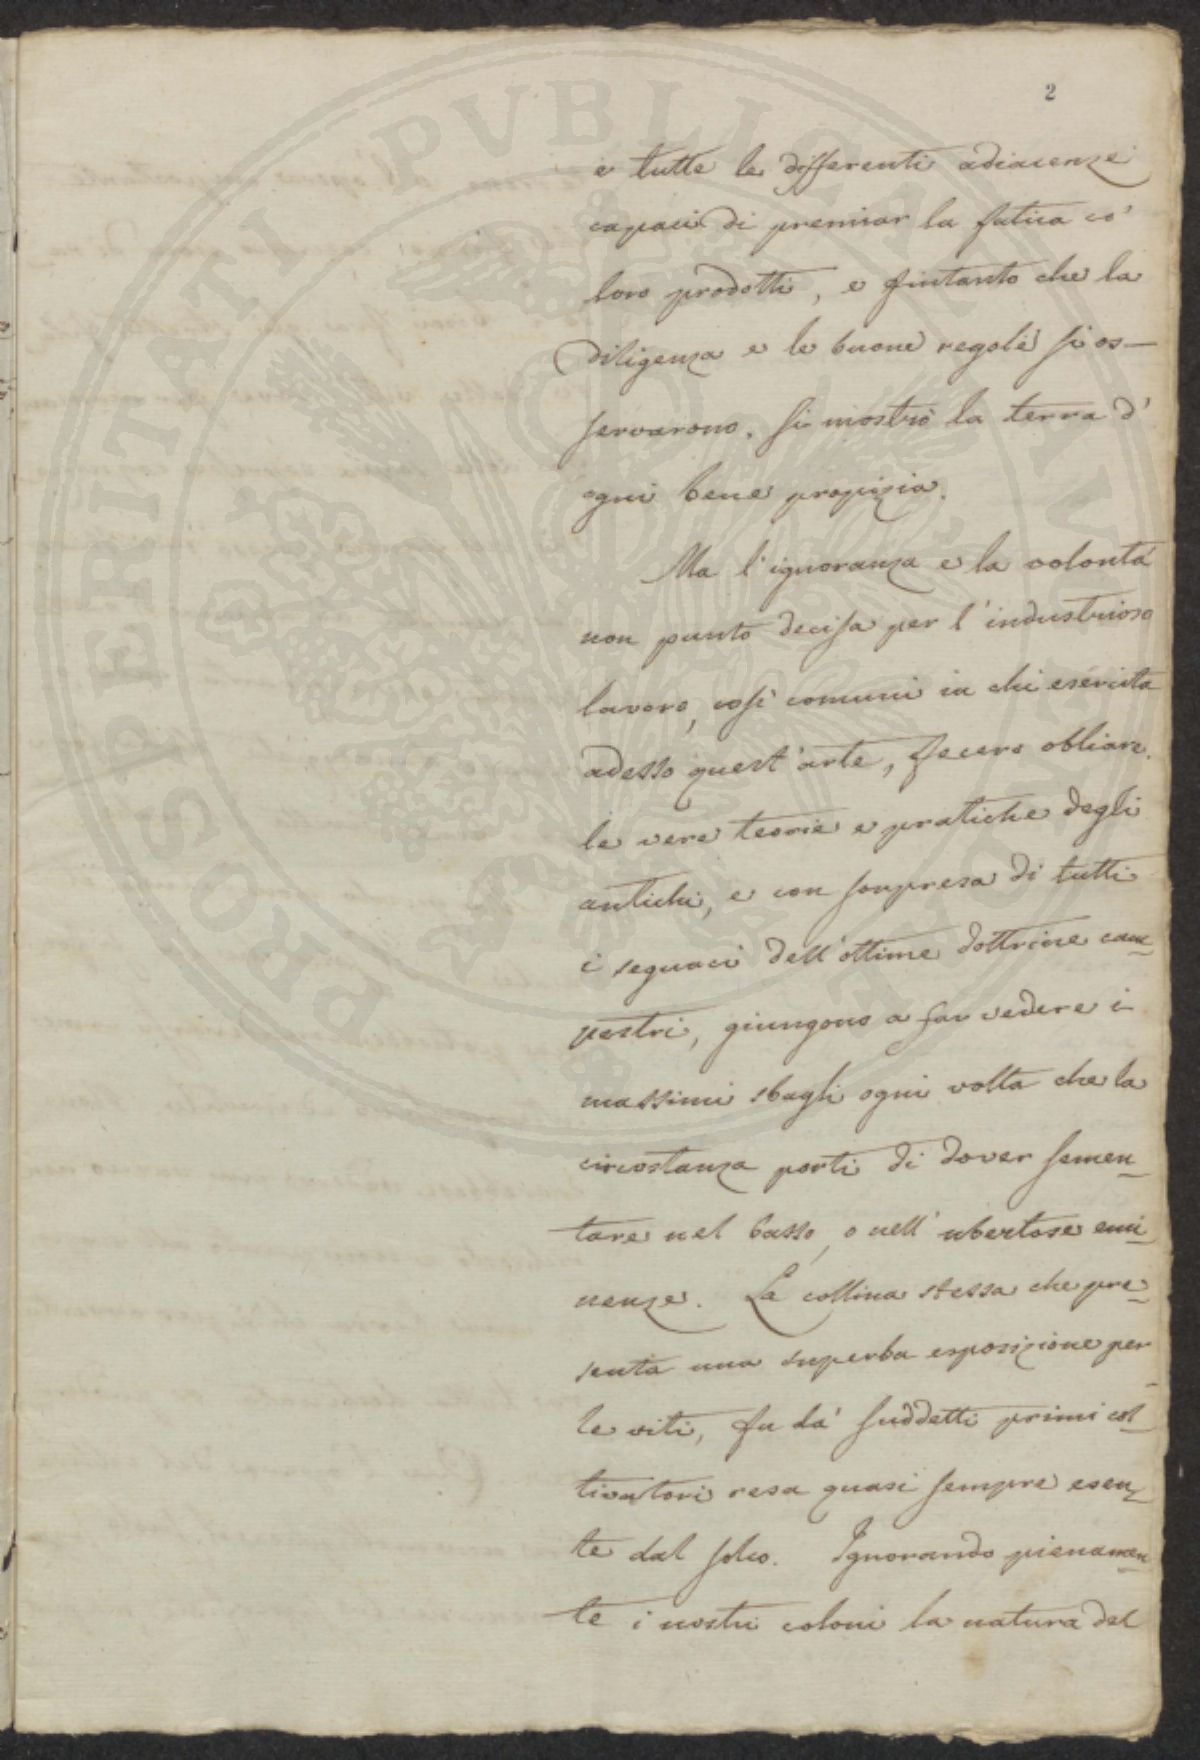 2
e tutte le differenti adiacenze
capaci di premiar la fatica co'
loro prodotti, e fintanto che la
diligenza e le buone regole si os-
servarono, si mostrò la terra d'
ogni bene propizia.
Ma l'ignoranza e la volontà
non punto decisa per l'industrioso
lavoro, così comuni in chi esercita
adesso quest'arte, fecero obliare
le vere teorie e pratiche degli
antichi, e con sorpresa di tutti
i seguaci dell'ottime dottrine cam-
pestri, giungono a far vedere i
massimi sbagli ogni volta che la
circostanza porti di dover semen-
tare nel basso, o nell'ubertose emi-
nenze. La collina stessa che pre-
senta una superba esposizione per
le viti, fu da' suddetti primi col-
tivatori resa quasi sempre esen-
te dal solco. Ignorando pienamen-
te i nostri coloni la natura del
PROSPERITATI PVBLICAE